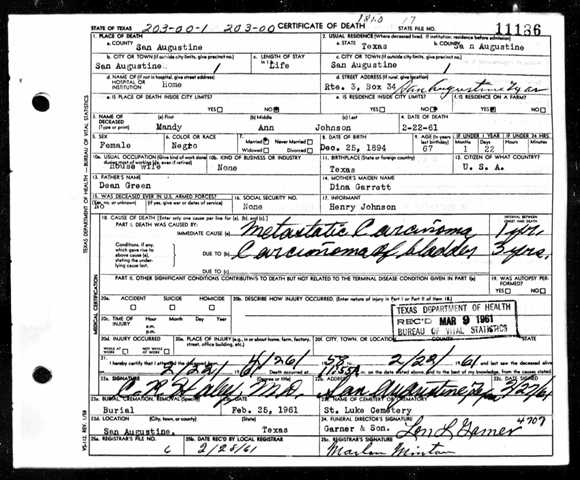 1810 17
STATE OF TEXAS 203-00-1 203-00 CERTIFICATE OF DEATH STATE FILE NO. 11136
1. PLACE OF DEATH
a. COUNTY San Augustine
2. USUAL RESIDENCE (Where deceased lived. If institution, residence before admission)
a. STATE Texas b. COUNTY Sa n Augustine
b. CITY OR TOWN (If outside city limits, give precinct no.) San Augustine 1
c. LENGTH OF STAY Life
c. CITY OR TOWN (If outside city limits, give precinct no.) San Augustine 1
d. NAME OF (If not in hospital, give street address) HOSPITAL OR INSTITUTION Home
d. STREET ADDRESS (If rural, give location) Rte. 3, Box 34 San Augustine Texas
e. IS PLACE OF DEATH INSIDE CITY LIMITS? YES NO
e. IS RESIDENCE INSIDE CITY LIMITS? YES NO
f. IS RESIDENCE ON A FARM? YES NO
3. NAME OF DECEASED (Type or print) (a) First Mandy (b) Middle Ann (c) Last Johnson
4. DATE OF DEATH 2-22-61
5. SEX Female
6. COLOR OR RACE Negro
7. Married Never Married Widowed Divorced
8. DATE OF BIRTH Dec. 25, 1894
9. AGE (In years last birthday) 67
IF UNDER 1 YEAR Months 1 Days 22
IF UNDER 24 HRS. Hours Min.
10a. USUAL OCCUPATION (Give kind of work done during most of working life, even if retired) House wife
10b. KIND OF BUSINESS OR INDUSTRY None
11. BIRTHPLACE (State or foreign country) Texas
12. CITIZEN OF WHAT COUNTRY? U. S. A.
13. FATHER'S NAME Dean Green
14. MOTHER'S MAIDEN NAME Dina Garrett
15. WAS DECEASED EVER IN U.S. ARMED FORCES? No
16. SOCIAL SECURITY NO. None
17. INFORMANT Henry Johnson
18. CAUSE OF DEATH [Enter only one cause per line for (a), (b), and (c).]
PART I. DEATH WAS CAUSED BY: INTERVAL BETWEEN ONSET AND DEATH
IMMEDIATE CAUSE (a) Metastatic Carcinoma 1 yr.
Conditions, if any, which gave rise to above cause (a), stating the underlying cause last.
DUE TO (b) Carcinoma of bladder 3 yrs.
DUE TO (c)
PART II. OTHER SIGNIFICANT CONDITIONS CONTRIBUTING TO DEATH BUT NOT RELATED TO THE TERMINAL DISEASE CONDITION GIVEN IN PART I(a)
19. WAS AUTOPSY PERFORMED? YES NO
20a. ACCIDENT SUICIDE HOMICIDE
20b. DESCRIBE HOW INJURY OCCURRED. (Enter nature of injury in Part I or Part II of item 18.)
20c. TIME OF INJURY Hour Month Day Year
a.m.
p.m.
TEXAS DEPARTMENT OF HEALTH
REC'D MAR 9 1961
BUREAU OF VITAL STATISTICS
20d. INJURY OCCURRED WHILE AT WORK NOT WHILE AT WORK
20e. PLACE OF INJURY (e.g., in or about home, farm, factory, street, office building, etc.)
20f. CITY, TOWN, OR LOCATION COUNTY STATE
21. I hereby certify that I attended the deceased
22a. SIGNATURE (Degree or title) M.D.
22b. ADDRESS San Augustine
22c. DATE SIGNED 2/27/61
23a. BURIAL, CREMATION, REMOVAL (Specify) Burial
23b. DATE Feb. 25, 1961
23c. NAME OF CEMETERY OR CREMATORY St. Luke Cemetery
23d. LOCATION (City, town, or county) (State) San Augustine, Texas
24. FUNERAL DIRECTOR'S SIGNATURE Garner & Son. Len L Garner 4707
25a. REGISTRAR'S FILE NO. 6
25b. DATE REC'D BY LOCAL REGISTRAR 2/28/61
25c. REGISTRAR'S SIGNATURE Marlon Minton
TEXAS DEPARTMENT OF HEALTH — BUREAU OF VITAL STATISTICS
MEDICAL CERTIFICATION
VS-112 REV. 1/58